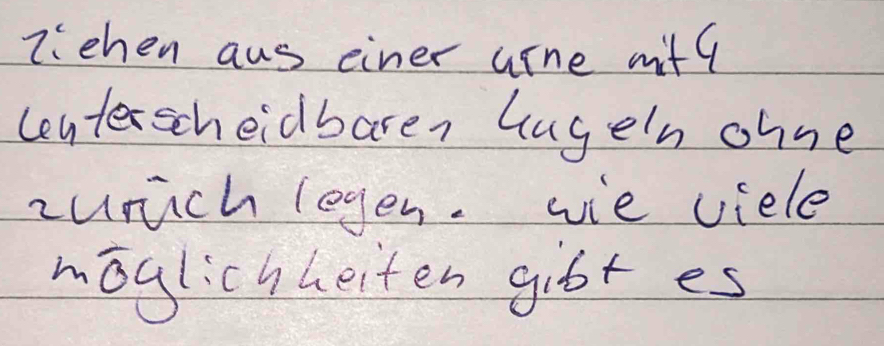 ziehen aus einer urne mit 4
unterscheidbaren kugeln ohne
zurück legen. wie viele
möglichkeiten gibt es